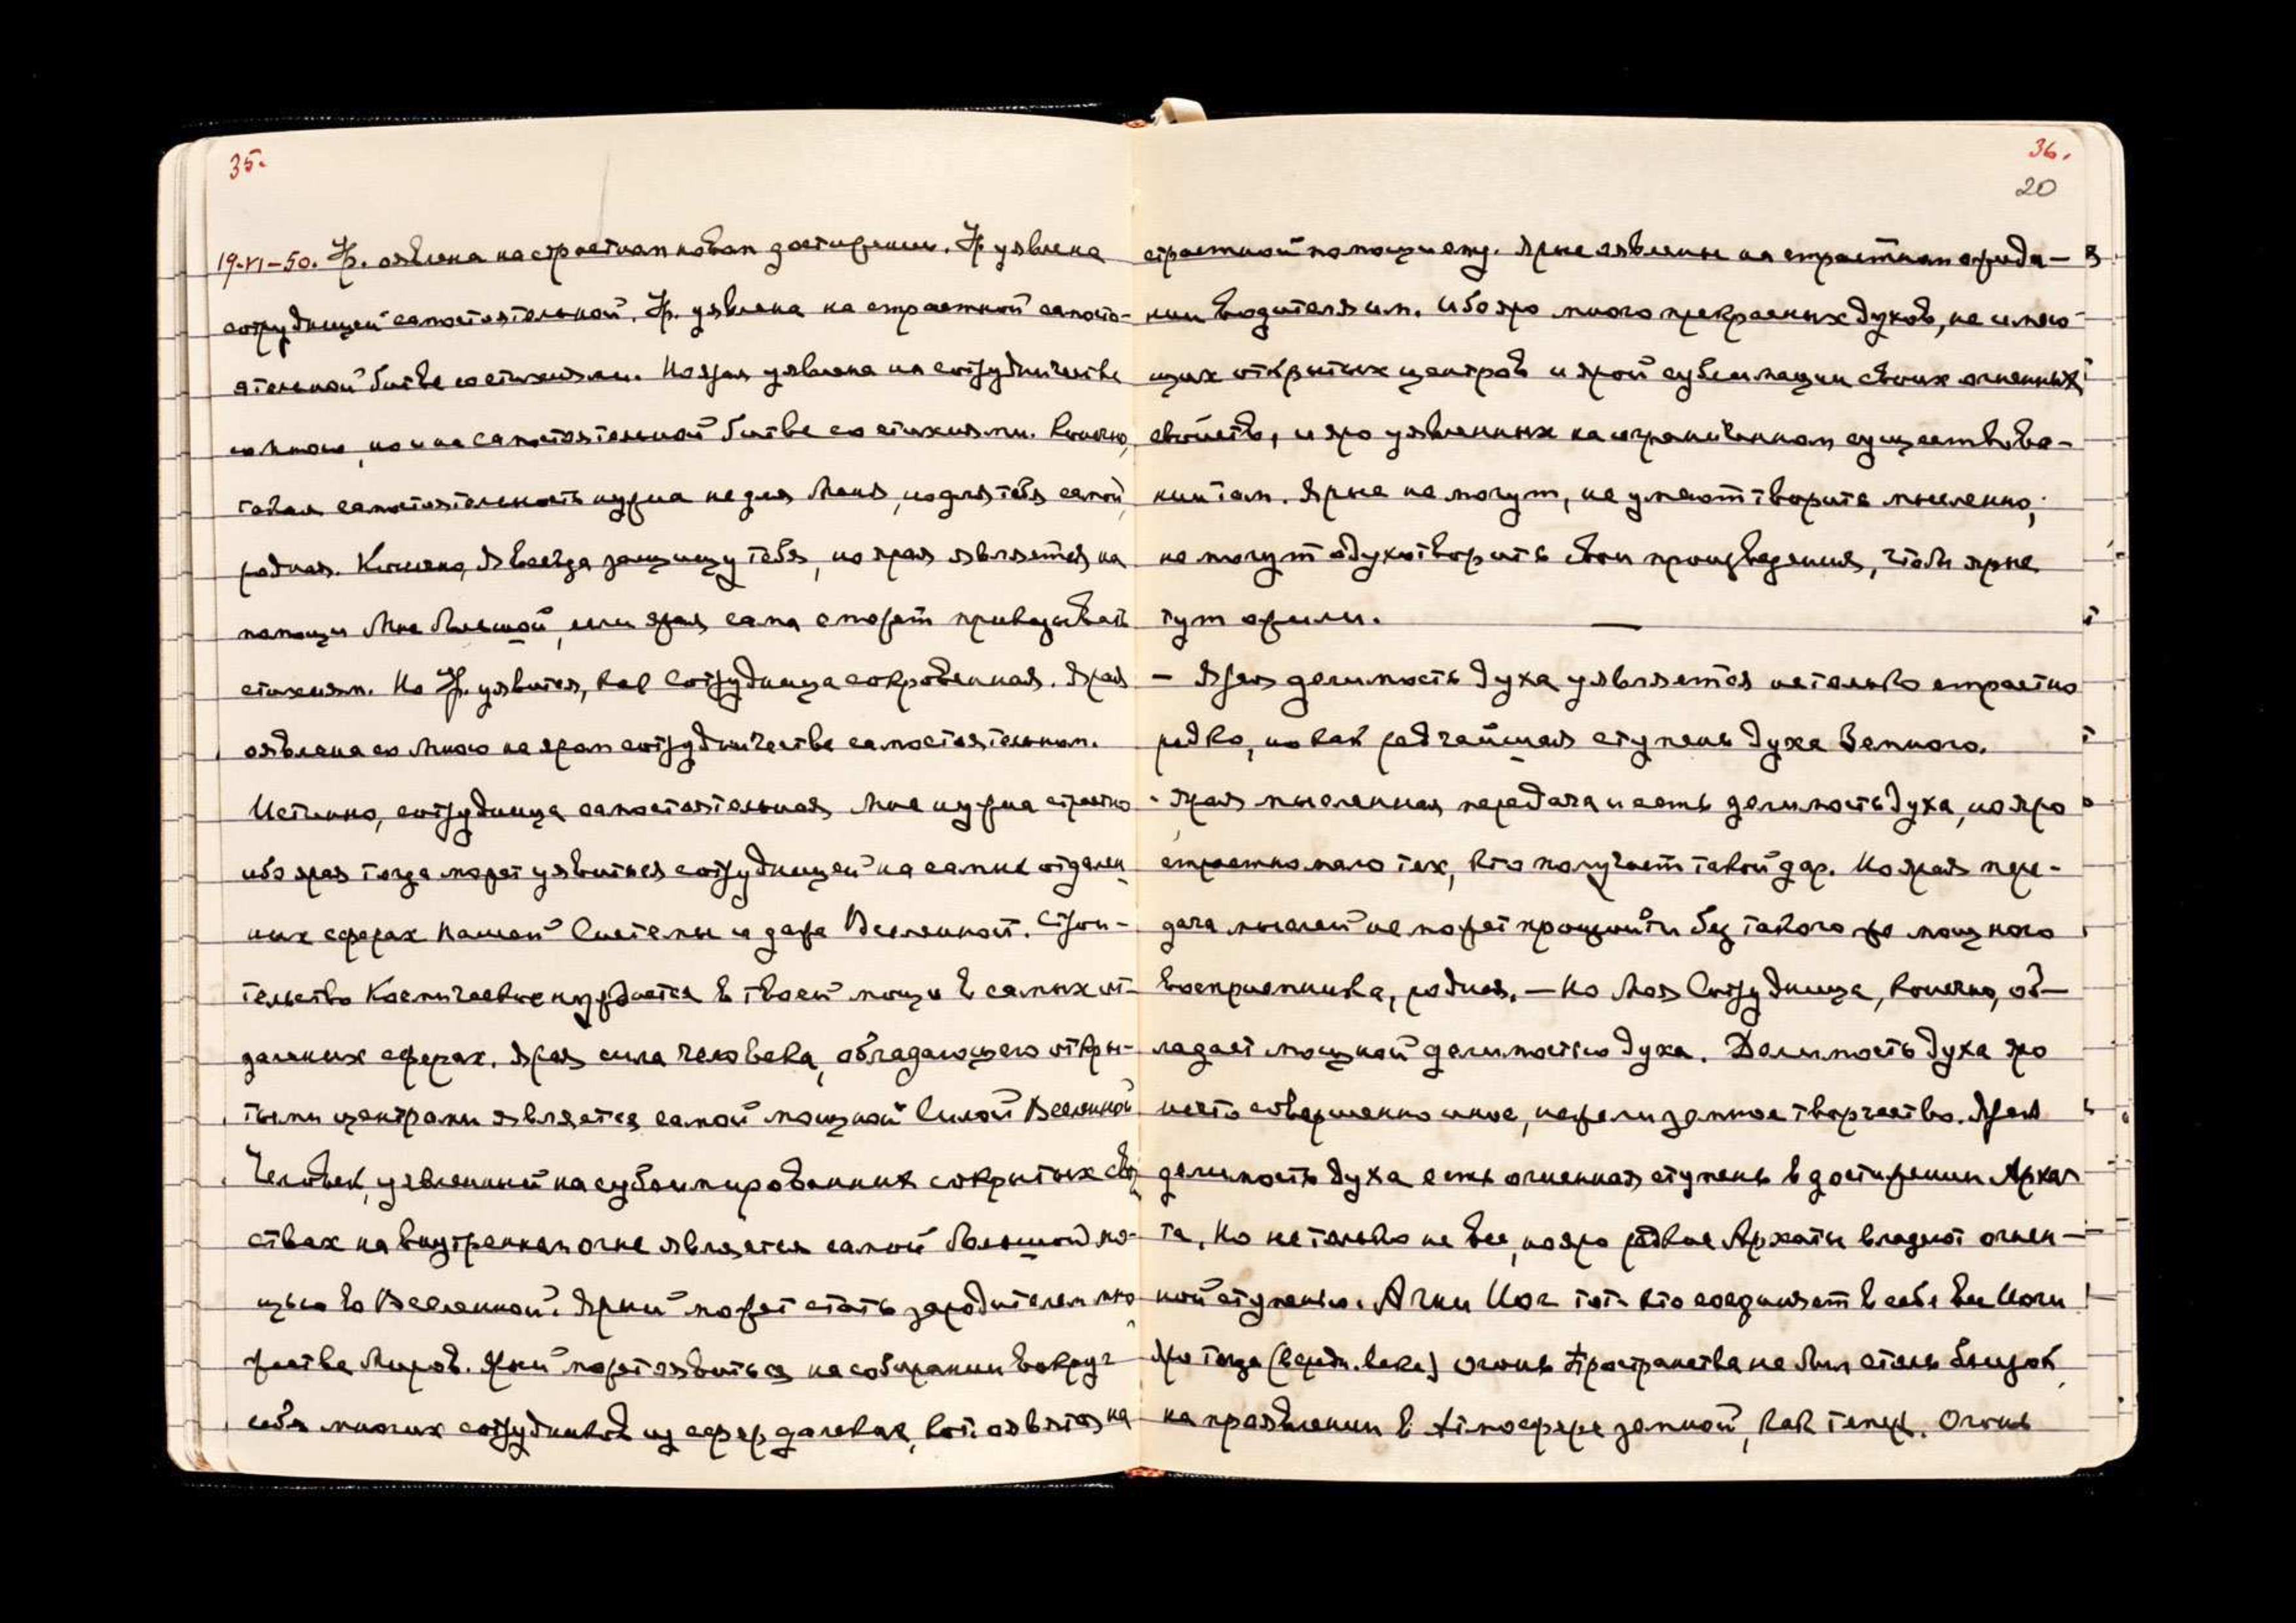 35.
19-VI-50. Ур. оявлена на страстном новом достижении. Ур уявлена
сотрудницей самостоятельной. Ур. уявлена на страстной самосто-
ятельной битве со стихиями. Но ярая уявлена на сотрудничестве
со Мною, но и на самостоятельной битве со стихиями. Конечно,
такая самостоятельность нужна не для Меня, но для тебя самой,
родная. Конечно, Я всегда защищу тебя, но ярая является на
помощи Мне большой, если ярая сама сможет приказывать
стихиям. Но Ур. уявится, как Сотрудница сокровенная. Ярая
оявлена со Мною на яром сотрудничестве самостоятельном.
Истинно, сотрудница самостоятельная Мне нужна страстно
ибо ярая тогда может уявиться сотрудницей на самых отдален
ных сферах нашей Системы и даже Вселенной. Строи-
тельство Космическое нуждается в твоей мощи в самых от-
даленных сферах. Ярая сила человека, обладающего откры-
тыми центрами является самой мощной Силой Вселенной
Человек, уявленный на сублимированных сокрытых свой
ствах на внутреннем огне является самой большой мо-
щью во Вселенной. Ярый может стать зародителем мно
жества Миров. Ярый может оявиться на собирании вокруг
себя многих сотрудников из сфер далеких, кот. оявятся на
36.
20
страстной помощи ему. Ярые оявлены на страстном ожида-
нии Водителя им. Ибо яро много прекрасных духов, не имею-
щих открытых центров и ярой сублимации своих огненных
свойств, и яро уявленных на ограниченном существова-
нии там. Ярые не могут, не умеют творить мысленно,
не могут одухотворить свои произведения, чтобы ярые
тут ожили.
— Ярая делимость духа уявляется не только страстно
редко, но как редчайшая ступень духа Земного.
- Ярая мысленная передача и есть делимость духа, но яро
страстно мало тех, кто получает такой дар. Но ярая пере-
дача мыслей не может произойти без такого же мощного
восприемника, родная. — Но Моя Сотрудница, конечно, об-
ладает мощной делимостью духа. Делимость духа яро
нечто совершенно иное, нежели земное творчество. Ярая
делимость духа есть огненная ступень в достижении Арха
та, Но не только не все, но яро редкие Архаты владеют огнен-
ной ступенью. Агни Йог тот кто соединяет в себе все Йоги
Яро тогда (в средн. века) огонь Пространства не был столь близок
на проявлении в Атмосфере земной, как теперь. Огонь